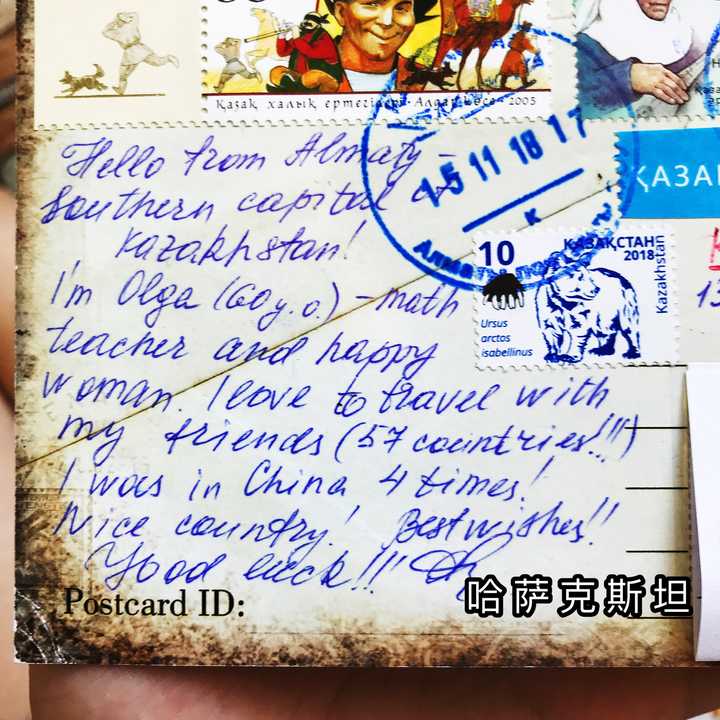 Қазақ халық ертегілері. Алдар-көсе - 2005
15 11 18 17
К
ҚАЗА
10
ҚАЗАҚСТАН
2018
Kazakhstan
Ursus
arctos
isabellinus
13
Hello from Almaty -
Southern capital of
Kazakhstan!
I'm Olga (60 y.o.) - math
teacher and happy
woman. I love to travel with
my friends (57 countries!!!)
I was in China 4 times!
Nice country! Best wishes!!
Good luck!!!
Postcard ID:
哈萨克斯坦